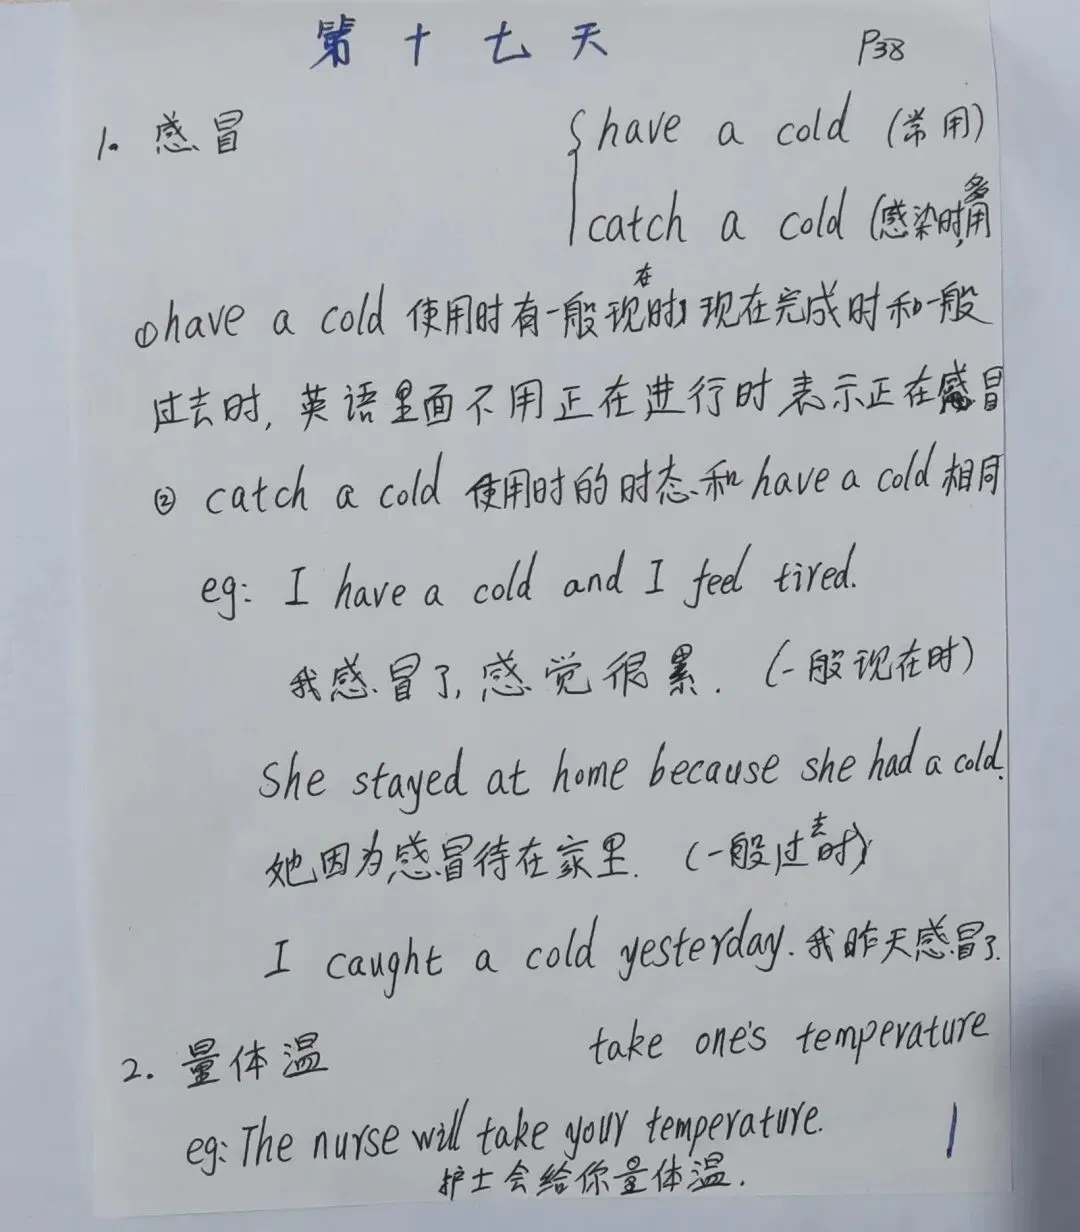 第十七天 P38
1. 感冒 { have a cold (常用)
catch a cold (感染时,多用
①have a cold 使用时有一般现在时,现在完成时和一般
过去时, 英语里面不用正在进行时表示正在感冒
② catch a cold 使用时的时态和 have a cold 相同
eg: I have a cold and I feel tired.
我感冒了,感觉很累. (一般现在时)
She stayed at home because she had a cold.
她因为感冒待在家里. (一般过去时)
I caught a cold yesterday. 我昨天感冒了.
2. 量体温 take one's temperature
eg: The nurse will take your temperature.
护士会给你量体温.
1